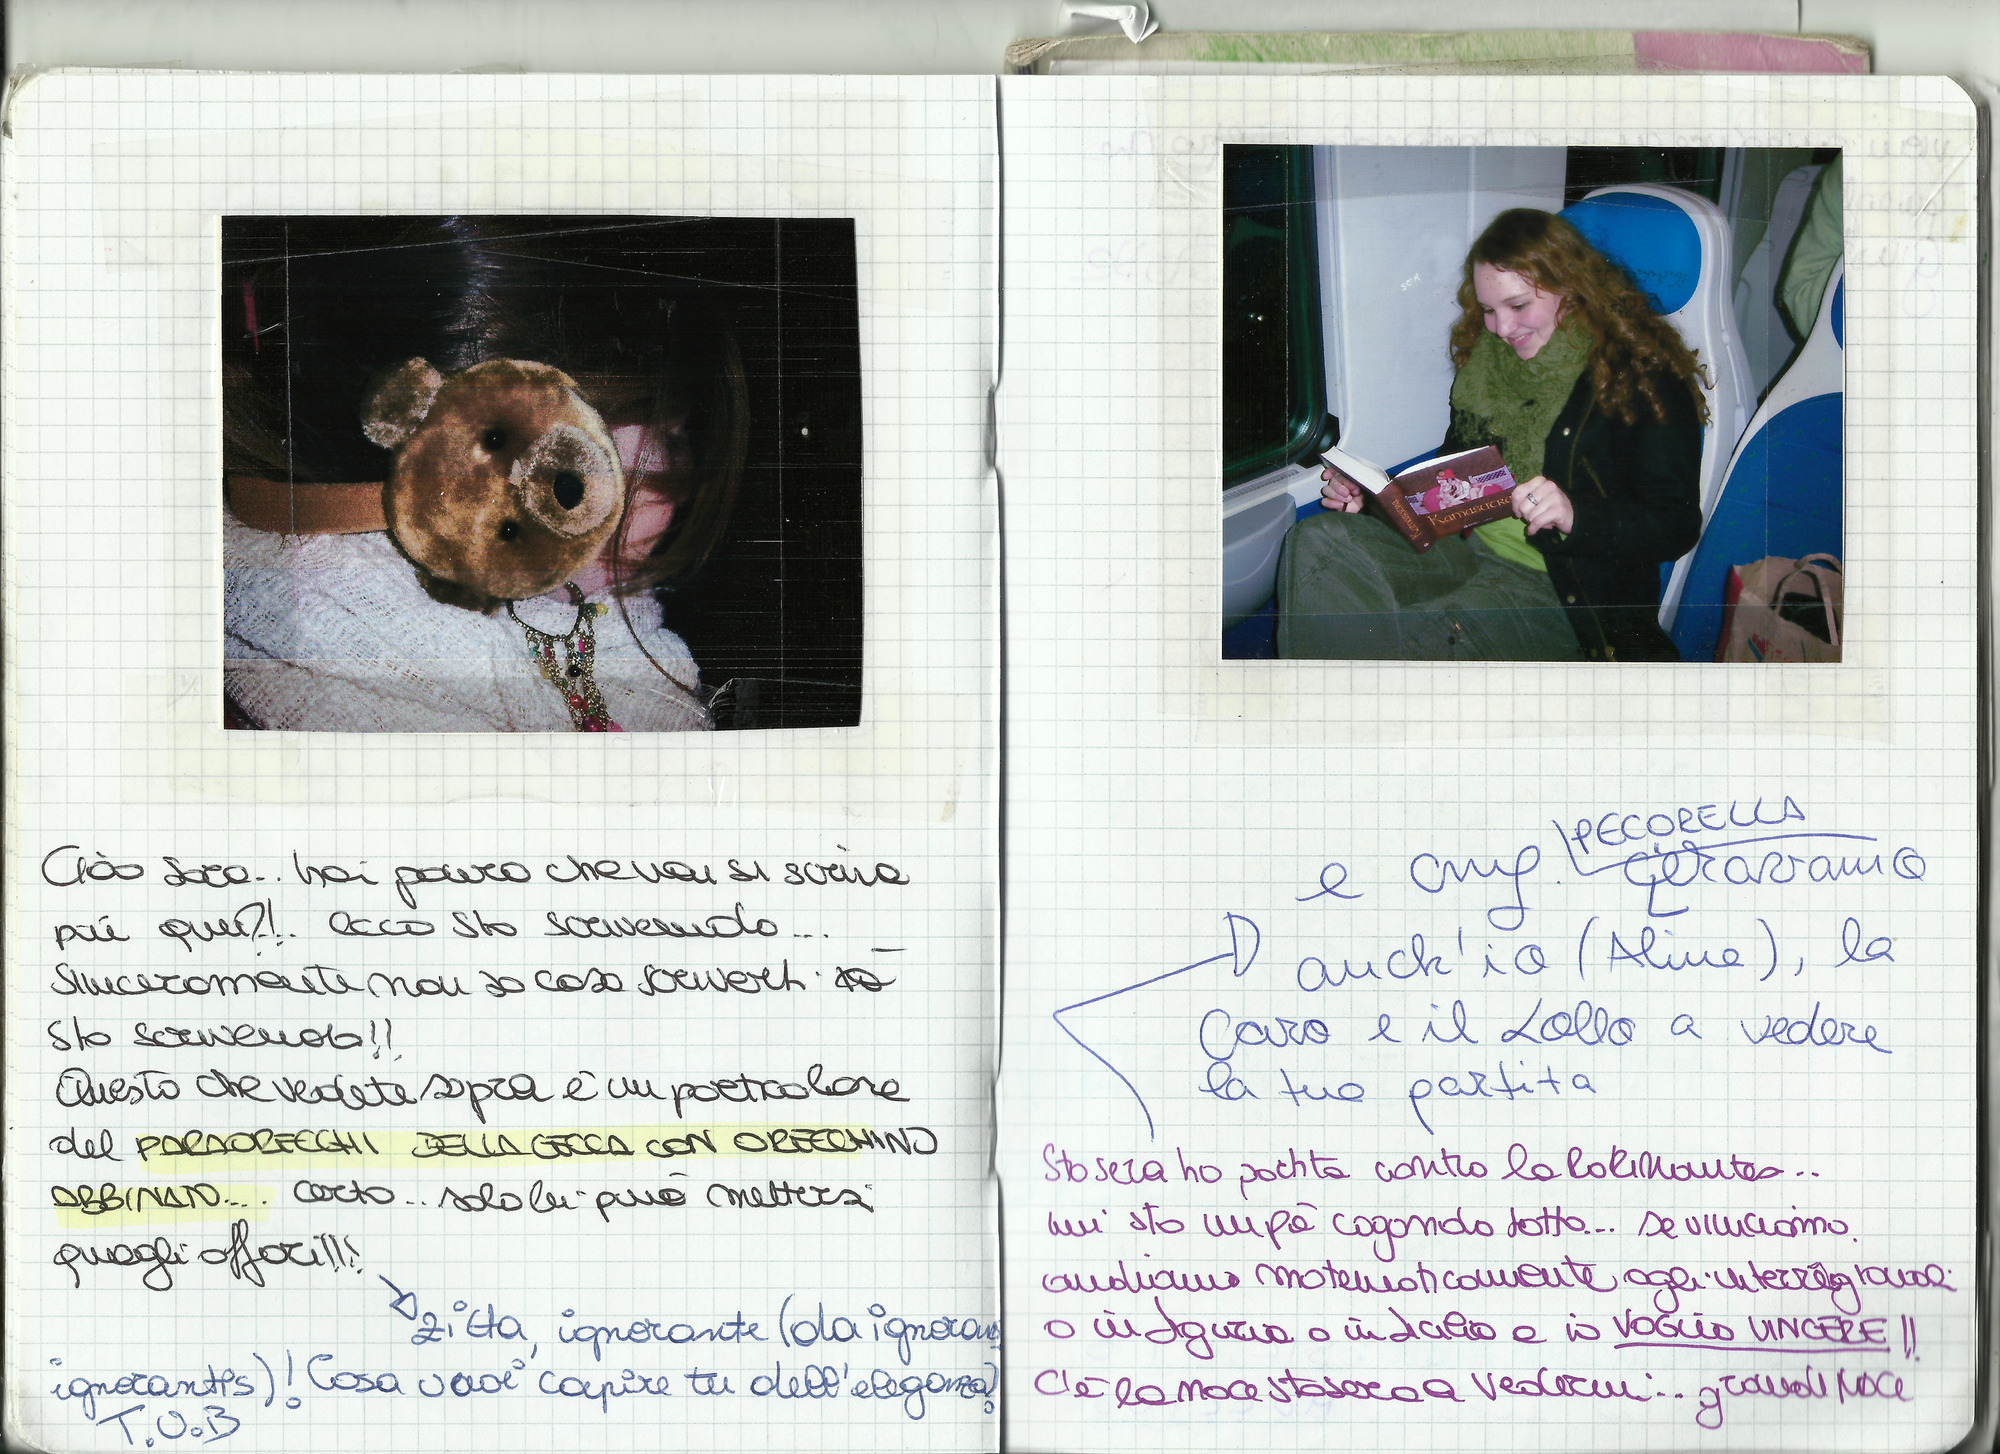 Ciao Sara... hai paura che non si scriva
più qui?!.. ecco sto scrivendo...
sinceramente non so cosa scriverti.
sto scrivendo!!
Questo che vedete sopra è un particolare
del PARAORECCHI DELLA CECCA CON ORECCHINO
ABBINATO... certo... solo lei può mettersi
quegli affari!!!
zitta, ignorante (da ignorans
ignorantis)! Cosa vuoi capire tu dell'eleganza?
T.V.B
SEX
Kamasutra
Kamasutra
PECORELLA
e cmq. c'eravamo
anch'io (Aline), la
Caro e il Lollo a vedere
la tua partita
Stasera ho partita contro la
mi sto un pò cagando sotto... se vinciamo
andiamo matematicamente agli interregionali
o in Liguria o in Lazio e io VOGLIO VINCERE!!
C'è la Noce stasera a vedermi... grande Noce